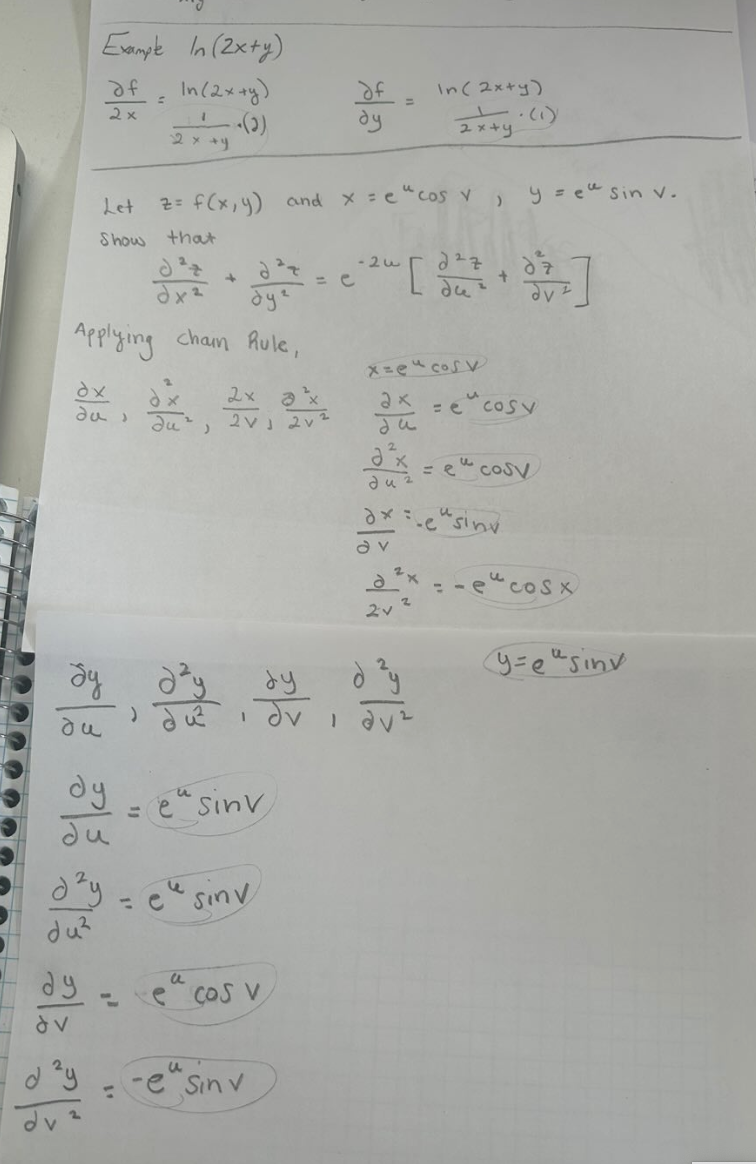 Example ln(2x+y)
∂f/2x = ln(2x+y) ∂f/∂y = ln(2x+y)
1/(2x+y) · (2) 1/(2x+y) · (1)
Let z = f(x,y) and x = e^u cos v , y = e^u sin v.
Show that
∂²z/∂x² + ∂²z/∂y² = e^-2u [ ∂²z/∂u² + ∂²z/∂v² ]
Applying Chain Rule,
x = e^u cos v
∂x/∂u , ∂²x/∂u² , 2x/2v , ∂²x/2v²
∂x/∂u = e^u cos v
∂²x/∂u² = e^u cos v
∂x/∂v = -e^u sin v
∂²x/2v² = -e^u cos x
∂y/∂u , ∂²y/∂u² , ∂y/∂v , ∂²y/∂v² y = e^u sin v
∂y/∂u = e^u sin v
∂²y/∂u² = e^u sin v
∂y/∂v = e^u cos v
d²y/dv² = -e^u sin v